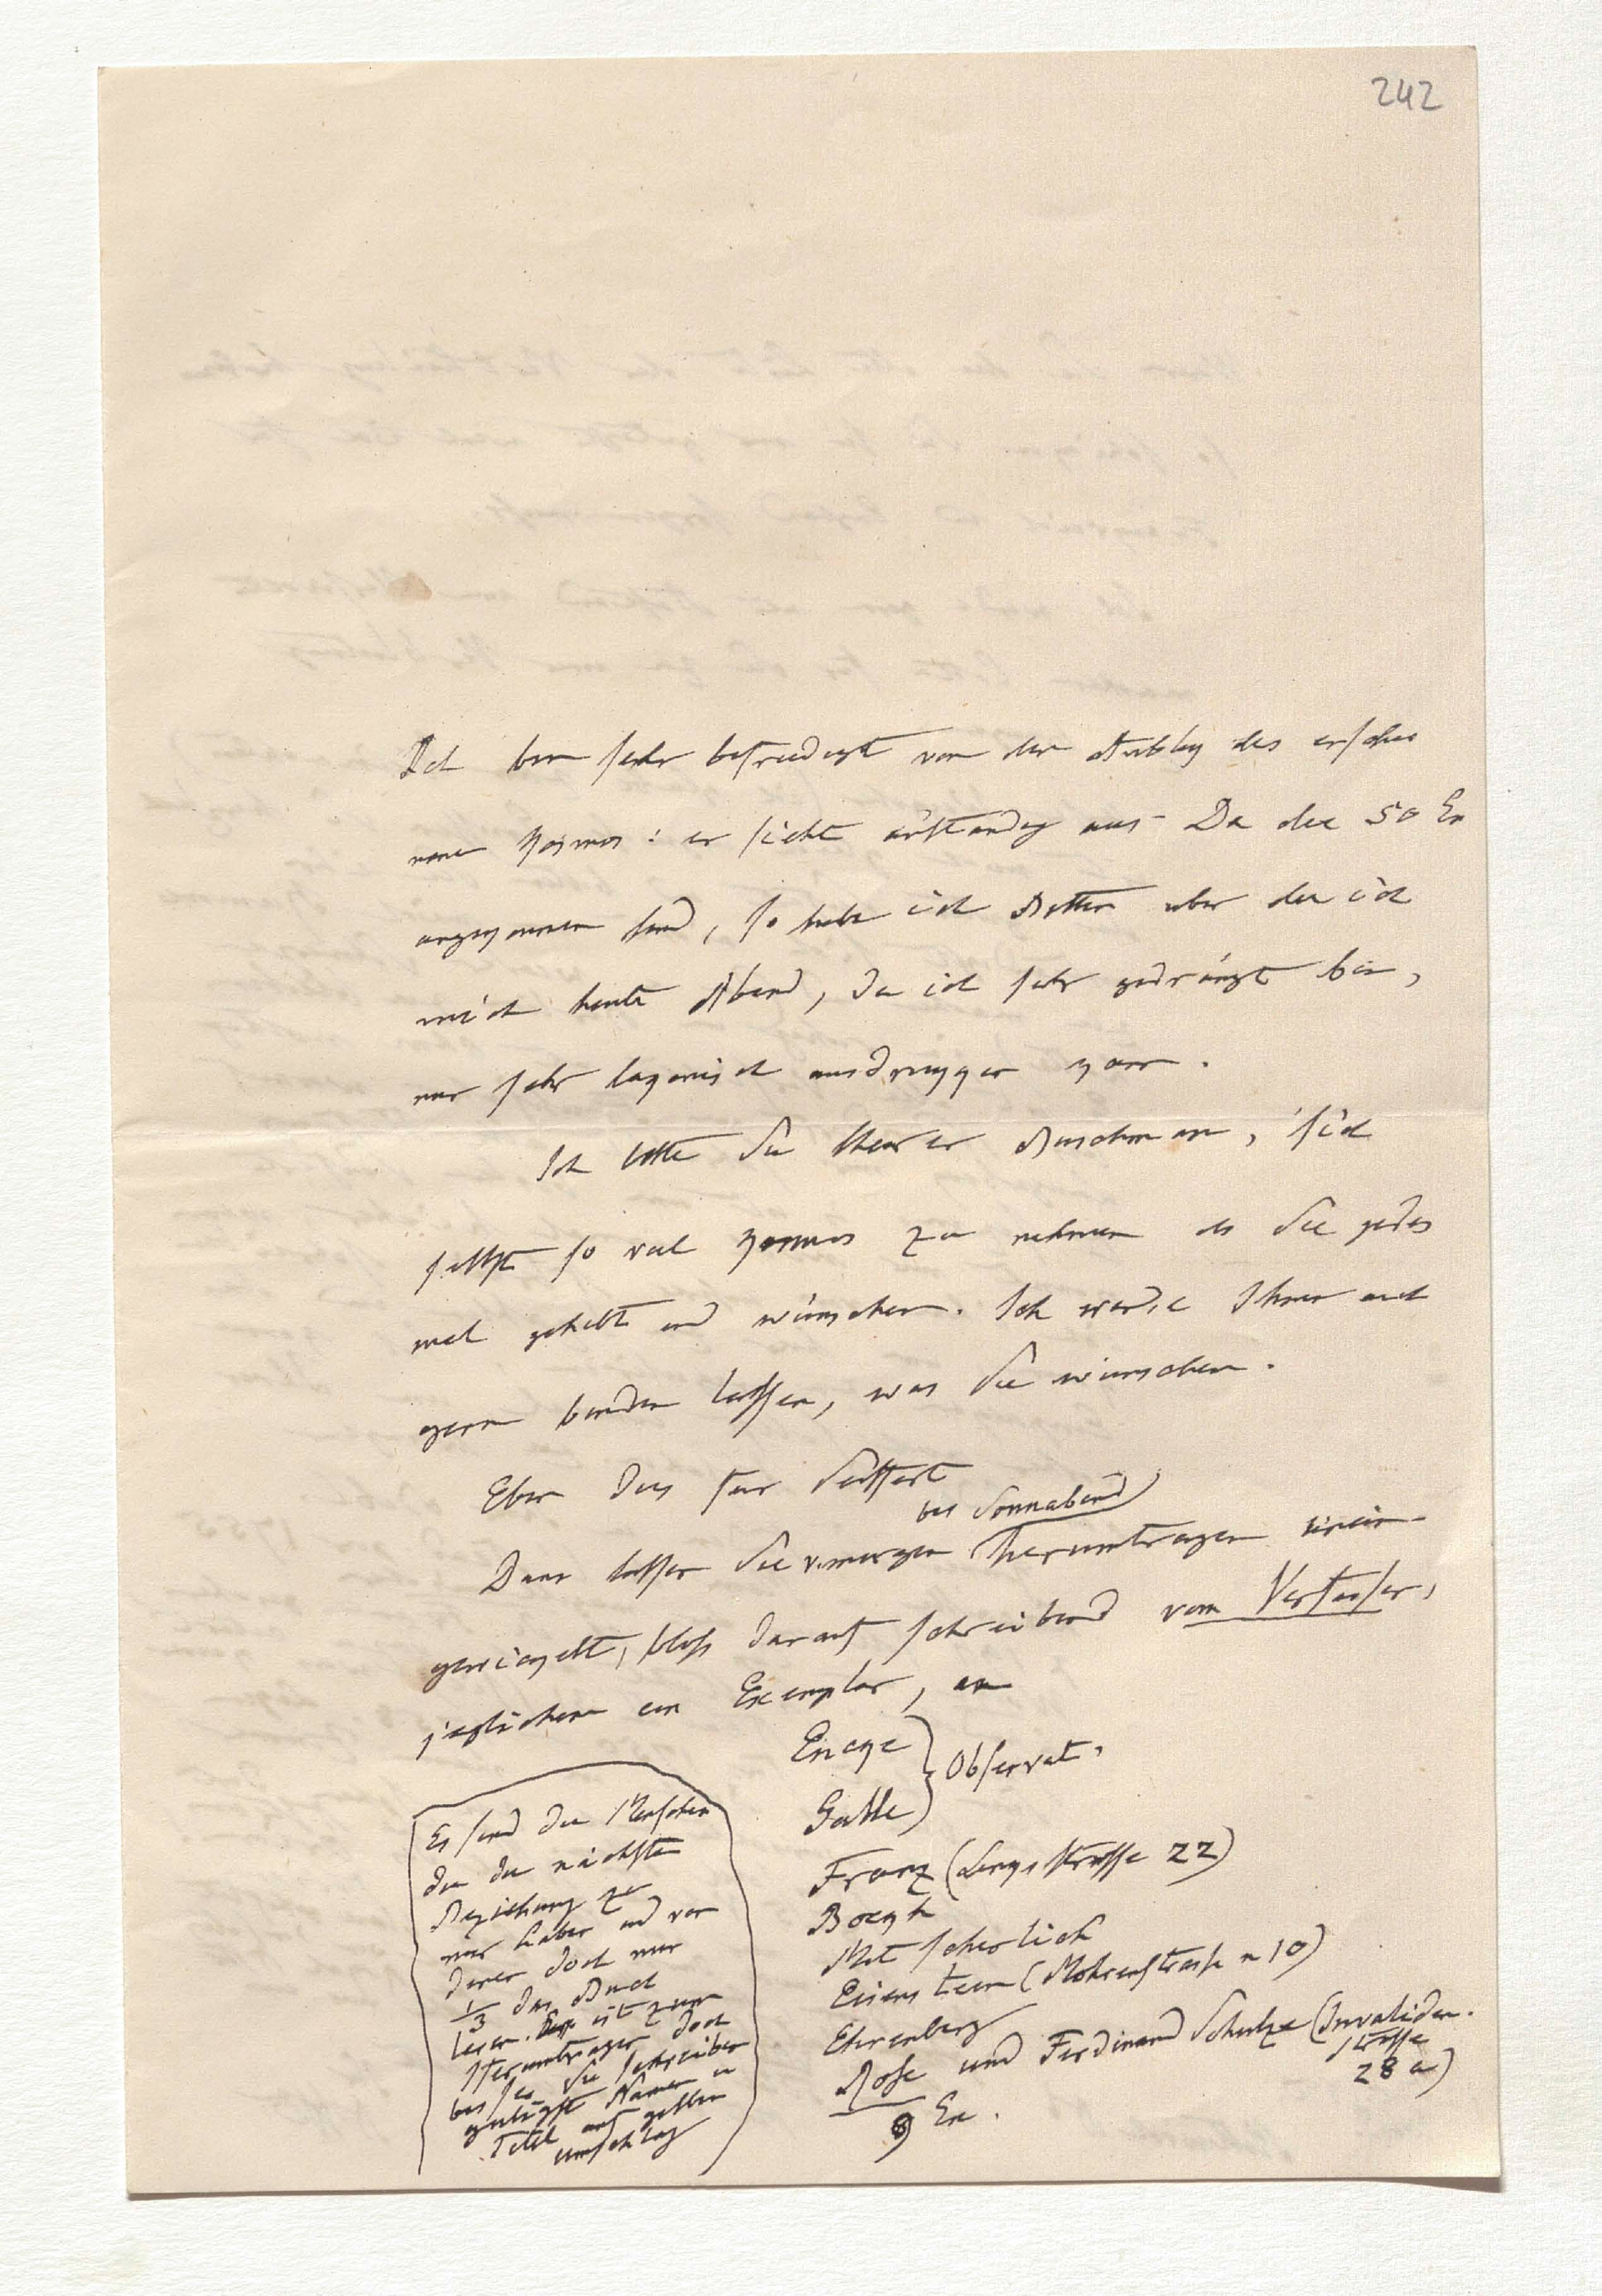 242
Ich bin sehr befriedigt von der Ausstattung des erschie
nenen Kosmos: er sieht anständig aus. Da die 50 Ex
angekommen sind, so habe ich Bitten über die ich
mich heute Abend, da ich sehr gedrängt bin,
nur sehr lakonisch ausdrükken kann.
Ich bitte Sie theurer Buschmann, sich
selbst so viel Kosmos zu nehmen als Sie jedes
mal gehabt und wünschen. Ich werde Ihnen auch
gern binden lassen, was Sie wünschen.
Eben dies für Seiffert
bis Sonnabend
Dann lassen Sie morgen herumtragen unein-
gewickelt, bloß darauf schreibend vom Verfasser,
jeglichem ein Exemplar, an
Encke
Galle
Observat.
Franz (Linksstrasse 22)
Boekh
Mitscherlich
Eisenstein (Mohrenstrasse n 10)
Ehrenberg
Rose und Ferdinand Schulze (Invaliden-
strasse
28 a)
9 Ex.
Es sind die Menschen
die die nächste
Beziehung zu
mir haben und von
denen doch nur
1/3 das Buch
lesen. ist zum
Herumtragen doch
besser Sie schreiben
gütigst Namen u
Titel auf gelben
umschlag